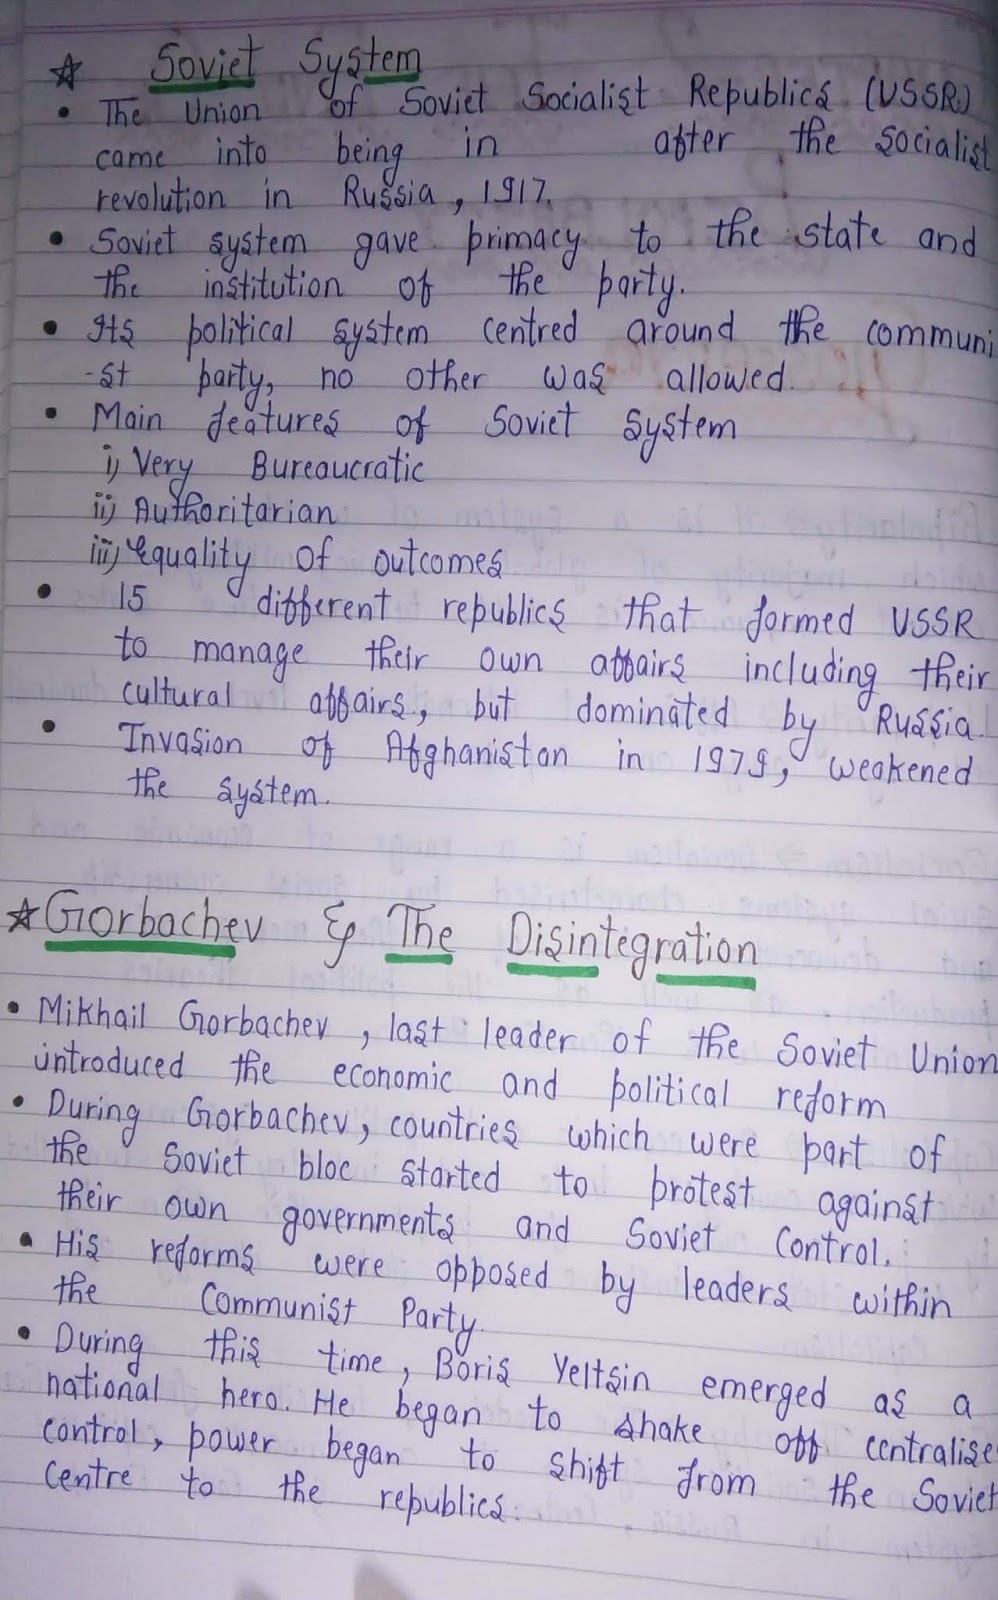 ☆ Soviet System
• The Union of Soviet Socialist Republics (USSR)
came into being in after the socialist
revolution in Russia, 1917.
• Soviet system gave primacy to the state and
the institution of the party.
• Its political system centred around the communi
-st party, no other was allowed.
• Main features of Soviet system
i) Very Bureaucratic
ii) Authoritarian
iii) Equality of outcomes
• 15 different republics that formed USSR
to manage their own affairs including their
cultural affairs, but dominated by Russia.
• Invasion of Afghanistan in 1979, weakened
the system.
☆ Gorbachev & The Disintegration
• Mikhail Gorbachev, last leader of the Soviet Union
introduced the economic and political reform
• During Gorbachev, countries which were part of
the Soviet bloc started to protest against
their own governments and Soviet Control.
• His reforms were opposed by leaders within
the Communist Party.
• During this time, Boris Yeltsin emerged as a
national hero. He began to shake off centralise
control, power began to shift from the Soviet
Centre to the republics.